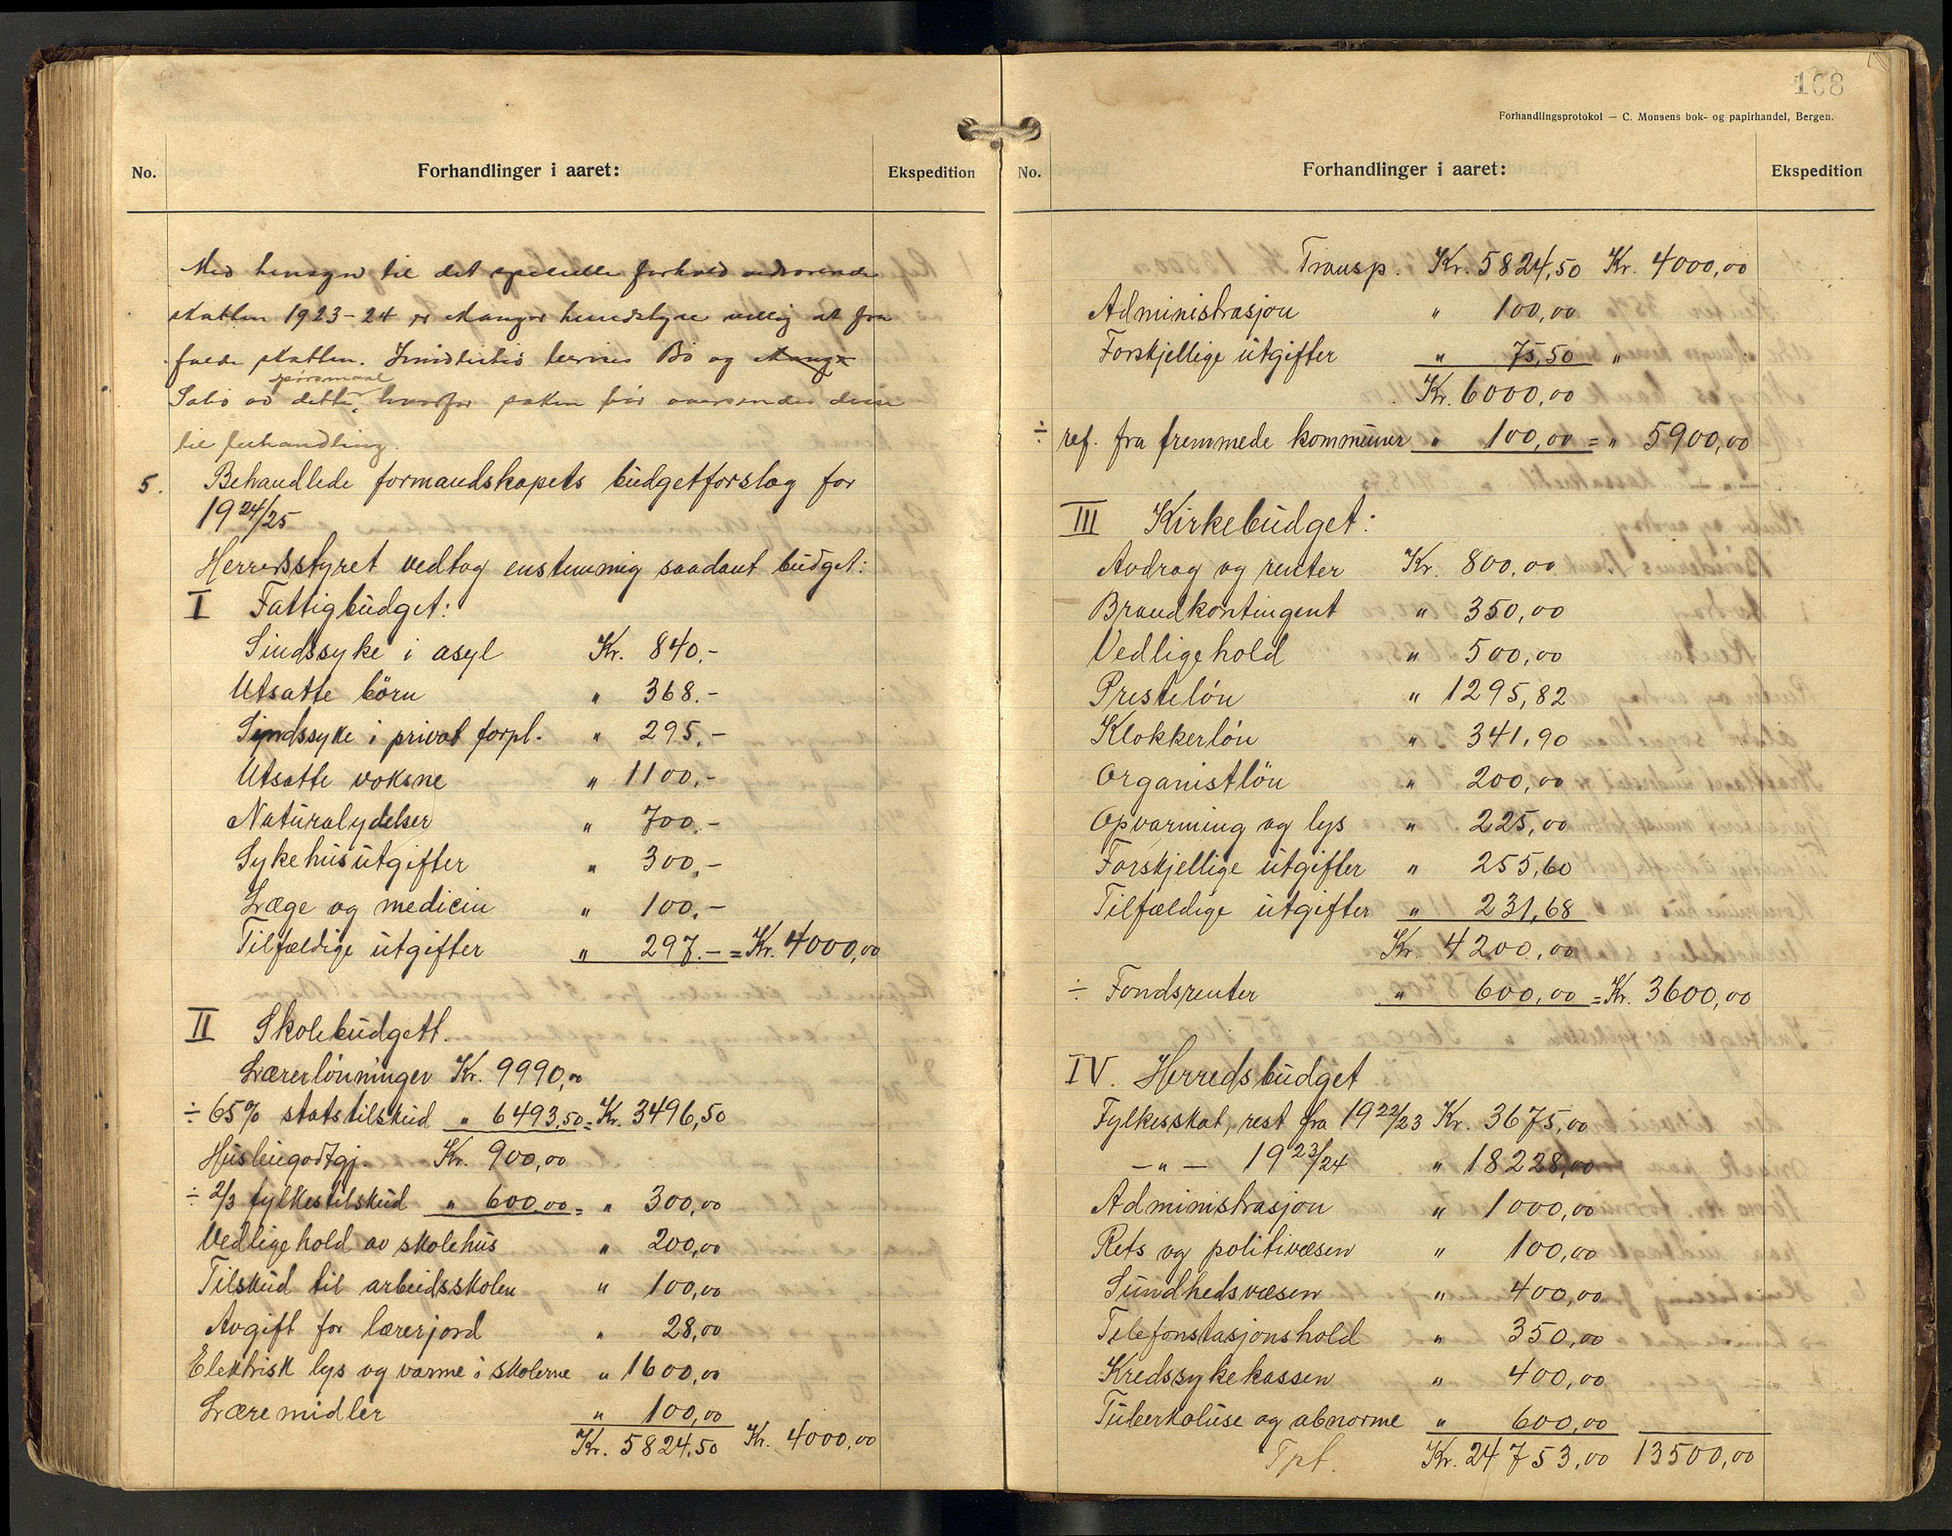 No.
Forhandlinger i aaret:
Ekspedition
Med hensyn til det specielle forhold vedrørende
skatten 1923-24 er Manger herredstyre villig at fra
falde skatten. Imidlertid Bø og
Sæbø av dette spørsmaal, hvorfor saken bør oversendes disse
til forhandling.
5. Behandlede formandskapets budgetforslag for
1924/25
Herredsstyret vedtog enstemmig saadant budget:
I Fattigbudget:
Sindssyke i asyl Kr. 840.-
Utsatte børn " 368.-
Sindssyke i privat forpl. " 295.-
Utsatte voksne " 1100.-
Naturalydelser " 700.-
Sykehusutgifter " 300.-
Læge og medicin " 100.-
Tilfældige utgifter " 297.- = Kr. 4000,00
II Skolebudgett.
Lærerlønninger Kr. 9990,00
÷ 65% statstilskud " 6493,50 = Kr. 3496,50
Husleiegodtgj. Kr. 900,00
÷ 2/3 fylkestilskud " 600,00 = " 300,00
Vedligehold av skolehus " 200,00
Tilskud til arbeidsskolen " 100,00
Avgift for lærerjord " 28,00
Elektrisk lys og varme i skolerne " 1600,00
Læremidler " 100,00
Kr. 5824,50 Kr. 4000,00
168
Forhandlingsprotokol — C. Monsens bok- og papirhandel, Bergen.
No.
Forhandlinger i aaret:
Ekspedition
Transp. Kr. 5824,50 Kr. 4000,00
Administrasjon " 100,00
Forskjellige utgifter " 75,50 "
Kr. 6000,00
÷ ref. fra fremmede kommuner " 100,00 = " 5900,00
III Kirkebudget:
Avdrag og renter Kr. 800,00
Brandkontingent " 350,00
Vedligehold " 500,00
Presteløn " 1295,82
Klokkerløn " 341,90
Organistløn " 200,00
Opvarming og lys " 225,00
Forskjellige utgifter " 255,60
Tilfældige utgifter " 231,68
Kr. 4200,00
÷ Fondsrenter " 600,00 = Kr. 3600,00
IV. Herredsbudget
Fylkesskat, rest fra 1922/23 Kr. 3675,00
-"- 1923/24 " 18228,00
Administrasjon " 1000,00
Rets og politivæsen " 100,00
Sundhedsvæsen " 400,00
Telefonstasjonshold " 350,00
Kredssykekassen " 400,00
Tuberkoluse og abnorme " 600,00
Tpt. Kr. 24753,00 13500,00